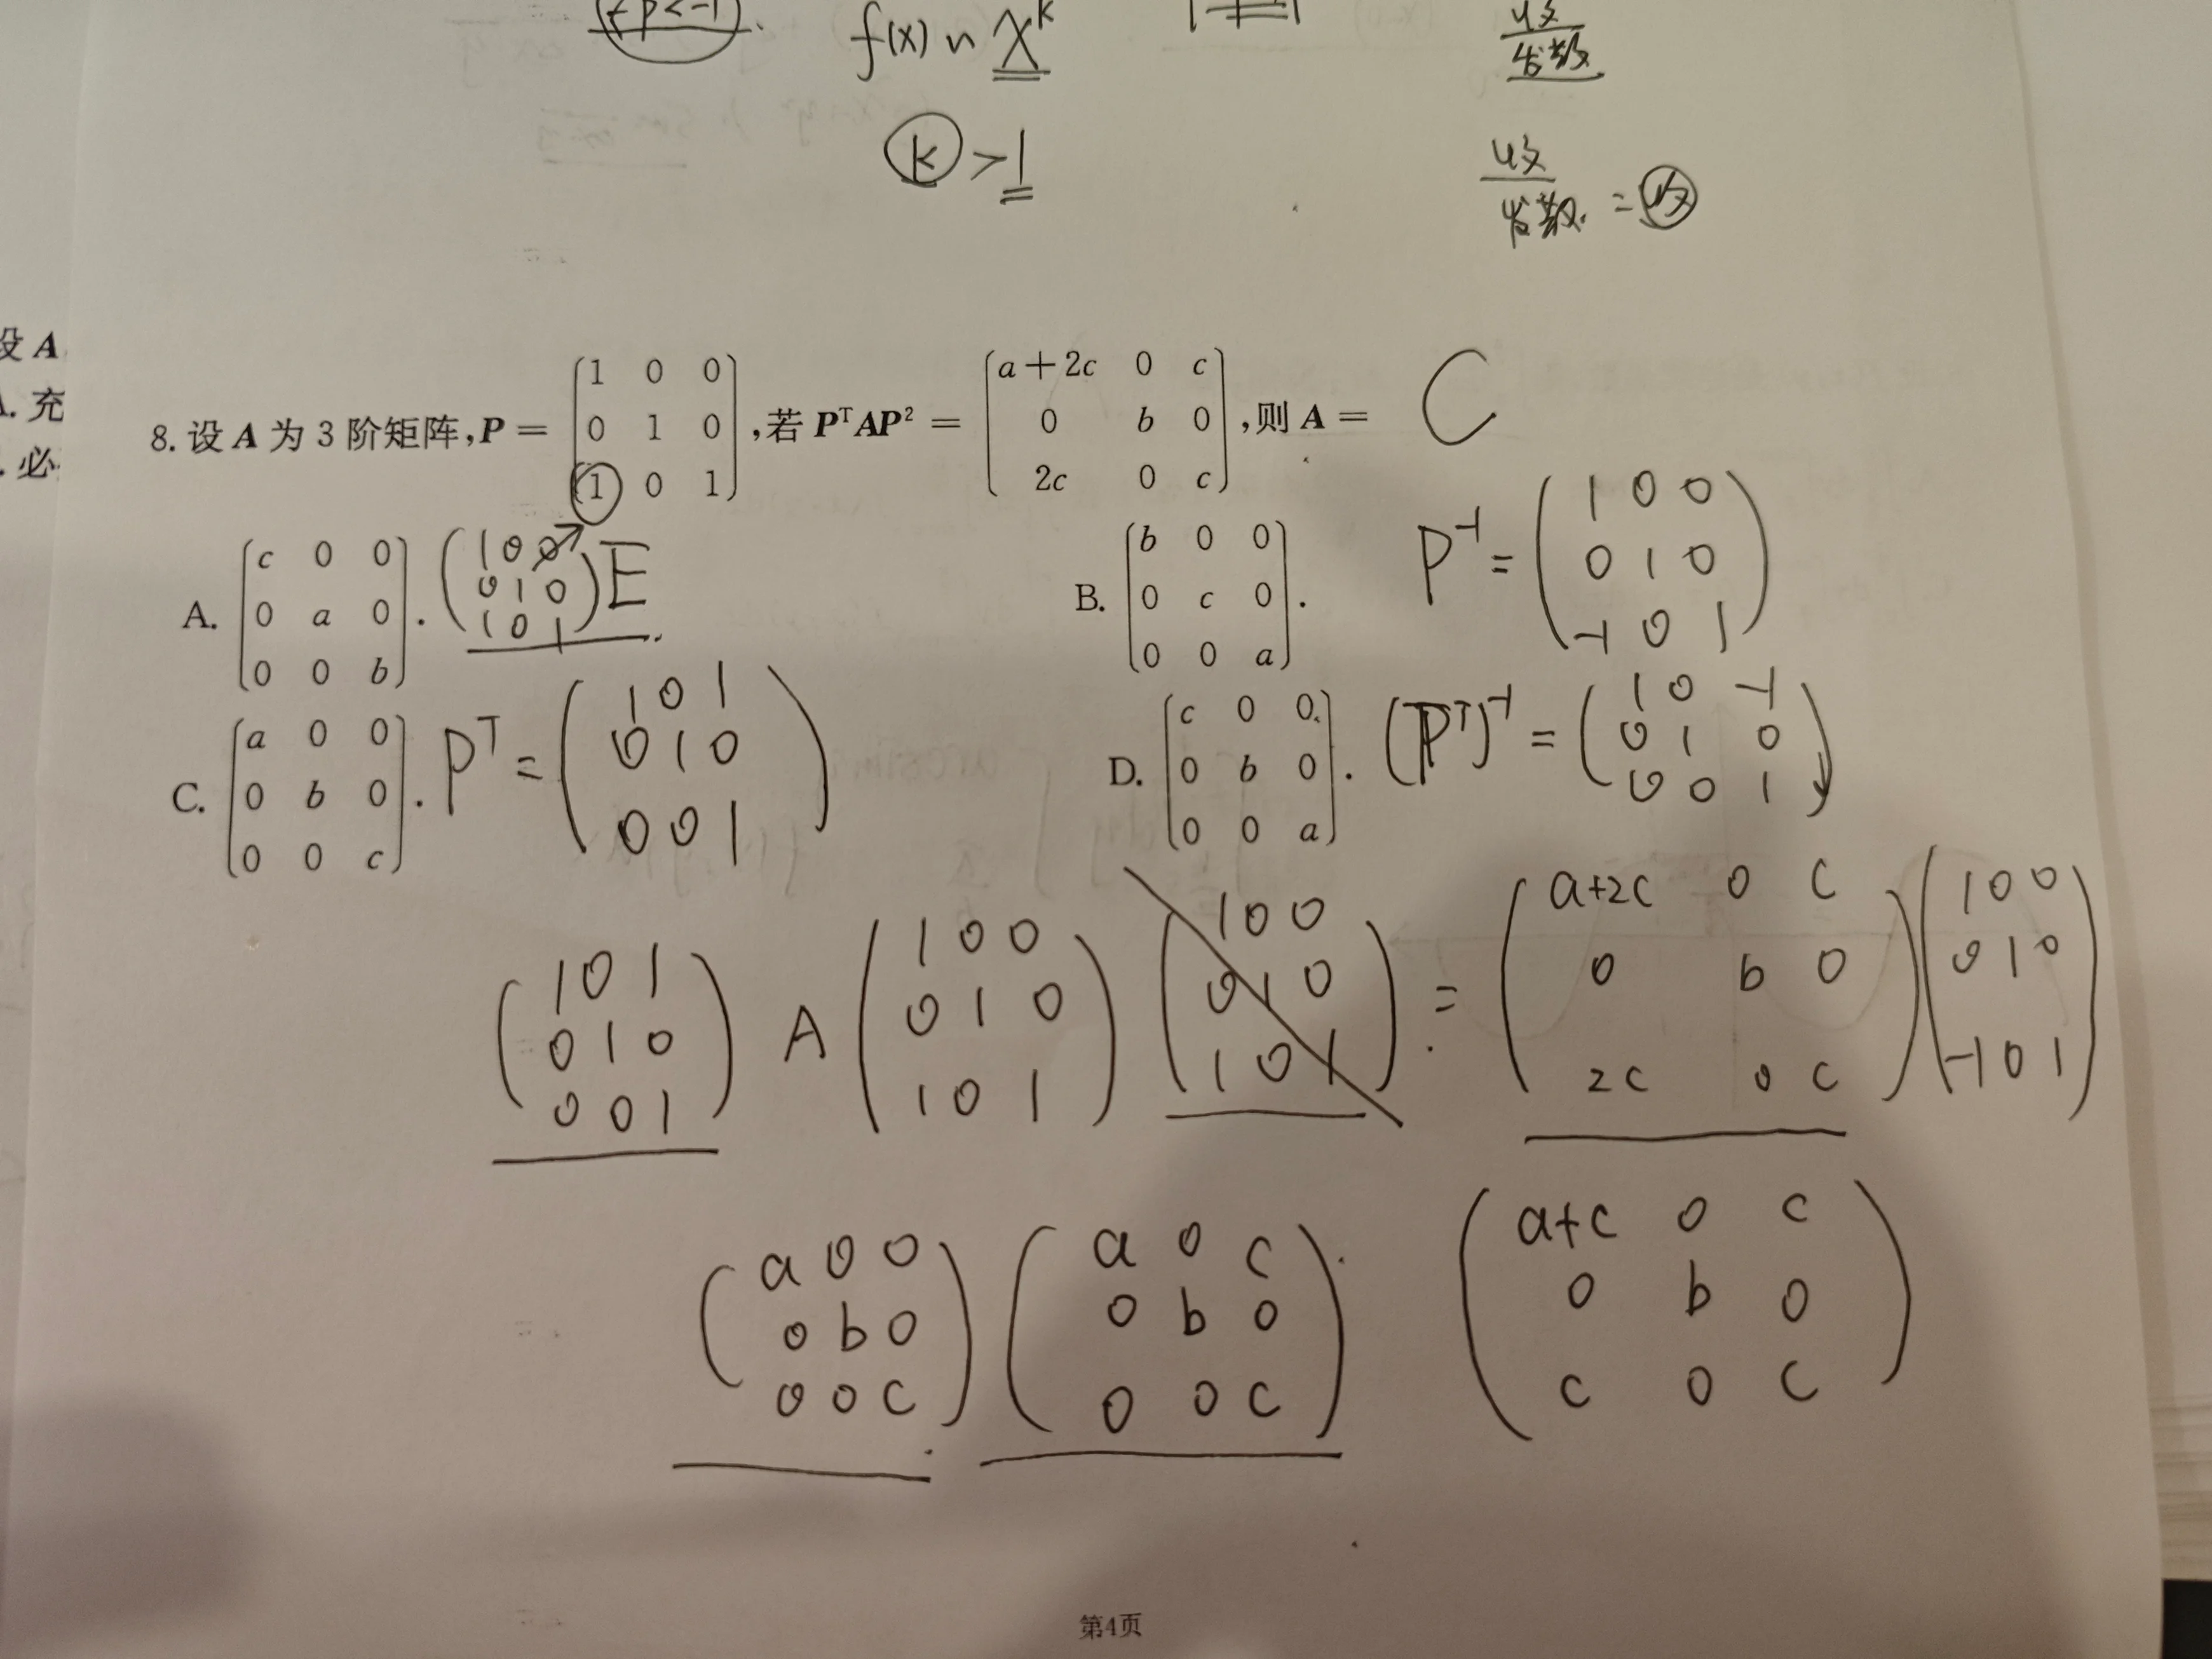 p<-1
f(x) ~ x^k
k >1
收/发散
收/发散 = 收
设 A
. 充
. 必
8. 设 A 为 3 阶矩阵, P = (1 0 0; 0 1 0; 1 0 1), 若 PᵀAP² = (a+2c 0 c; 0 b 0; 2c 0 c), 则 A = C
A. (c 0 0; 0 a 0; 0 0 b). (1 0 0; 0 1 0; 1 0 1) E
B. (b 0 0; 0 c 0; 0 0 a).
P⁻¹ = (1 0 0; 0 1 0; -1 0 1)
C. (a 0 0; 0 b 0; 0 0 c). Pᵀ = (1 0 1; 0 1 0; 0 0 1)
D. (c 0 0; 0 b 0; 0 0 a). (Pᵀ)⁻¹ = (1 0 -1; 0 1 0; 0 0 1)
(1 0 1; 0 1 0; 0 0 1) A (1 0 0; 0 1 0; 1 0 1) (1 0 0; 0 1 0; 1 0 1) = (a+2c 0 c; 0 b 0; 2c 0 c) (1 0 0; 0 1 0; -1 0 1)
(a 0 0; 0 b 0; 0 0 c) (a 0 c; 0 b 0; 0 0 c) (a+c 0 c; 0 b 0; c 0 c)
第4页